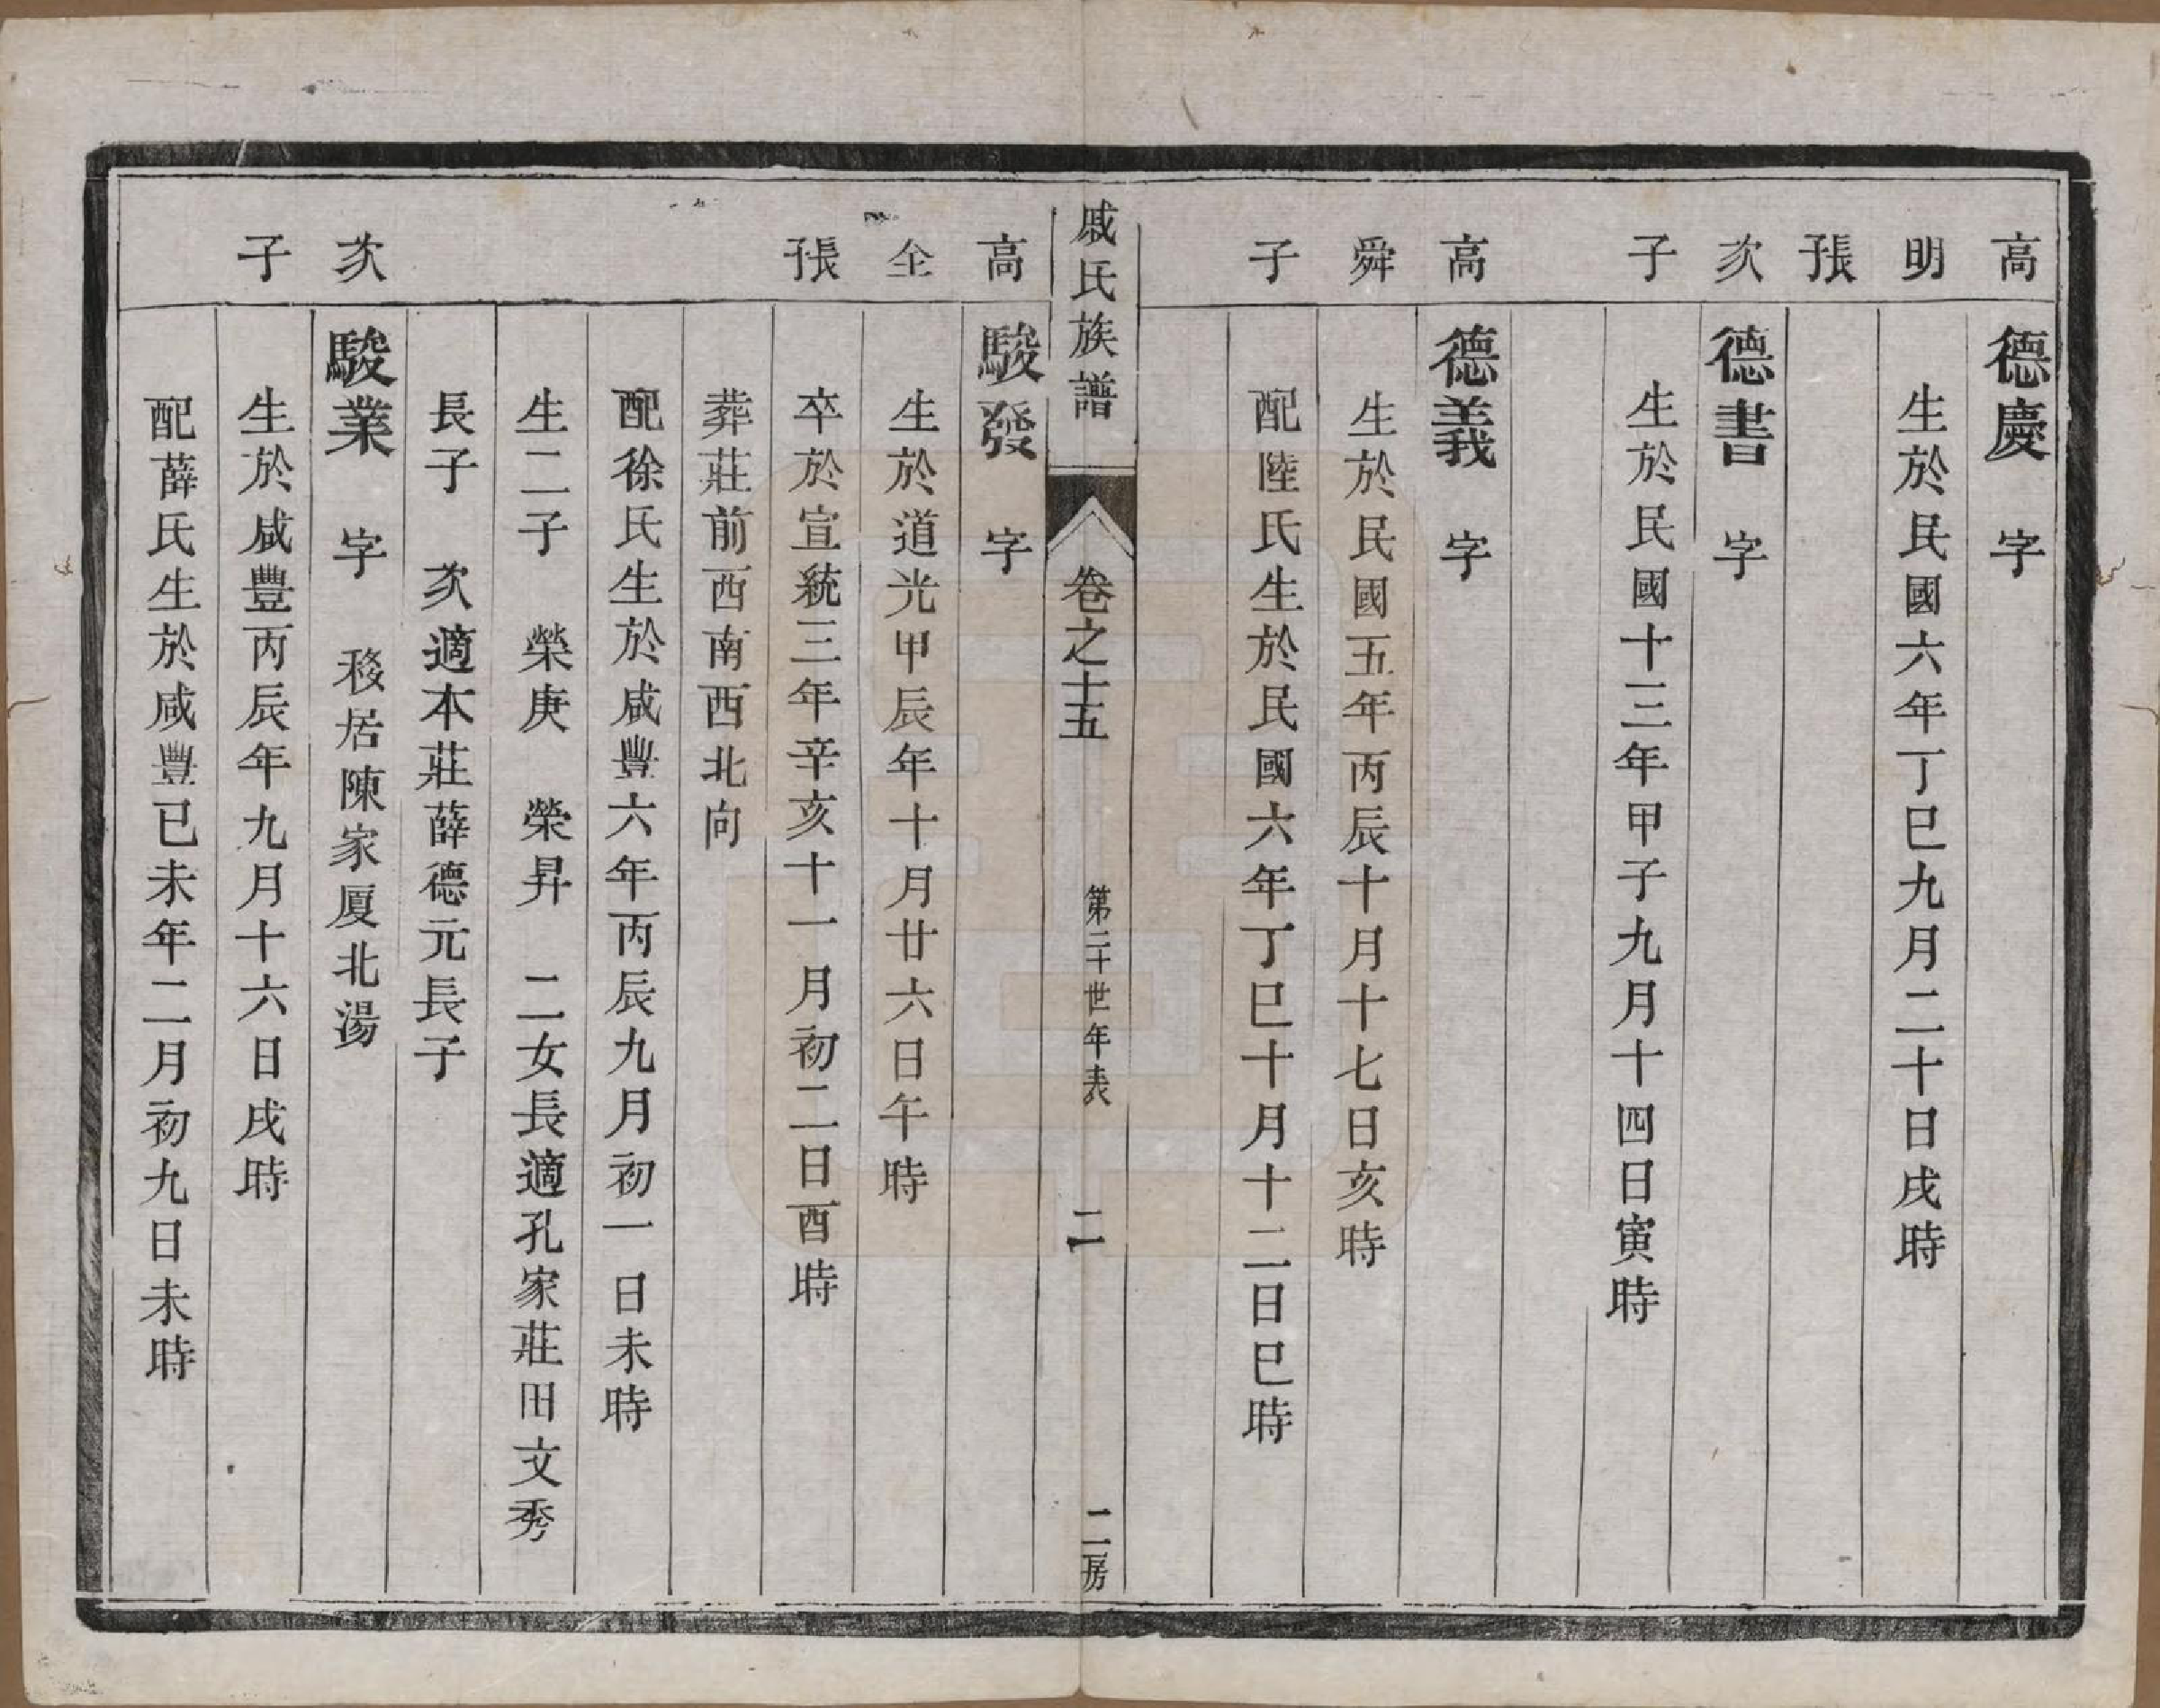 高 德慶 字
明 生於民國六年丁巳九月二十日戌時
張
次 德書 字
子 生於民國十三年甲子九月十四日寅時
高 德義 字
舜 生於民國五年丙辰十月十七日亥時
子 配陸氏生於民國六年丁巳十月十二日巳時
戚氏族譜 卷之十五 第二十世年表 二 二房
高 駿發 字
仝 生於道光甲辰年十月廿六日午時
張 卒於宣統三年辛亥十一月初二日酉時
葬莊前西南西北向
配徐氏生於咸豐六年丙辰九月初一日未時
生二子 榮庚 榮昇 二女長適孔家莊田文秀
長子 次適本莊薛德元長子
次 駿業 字 移居陳家厦北湯
子 生於咸豐丙辰年九月十六日戌時
配薛氏生於咸豐己未年二月初九日未時